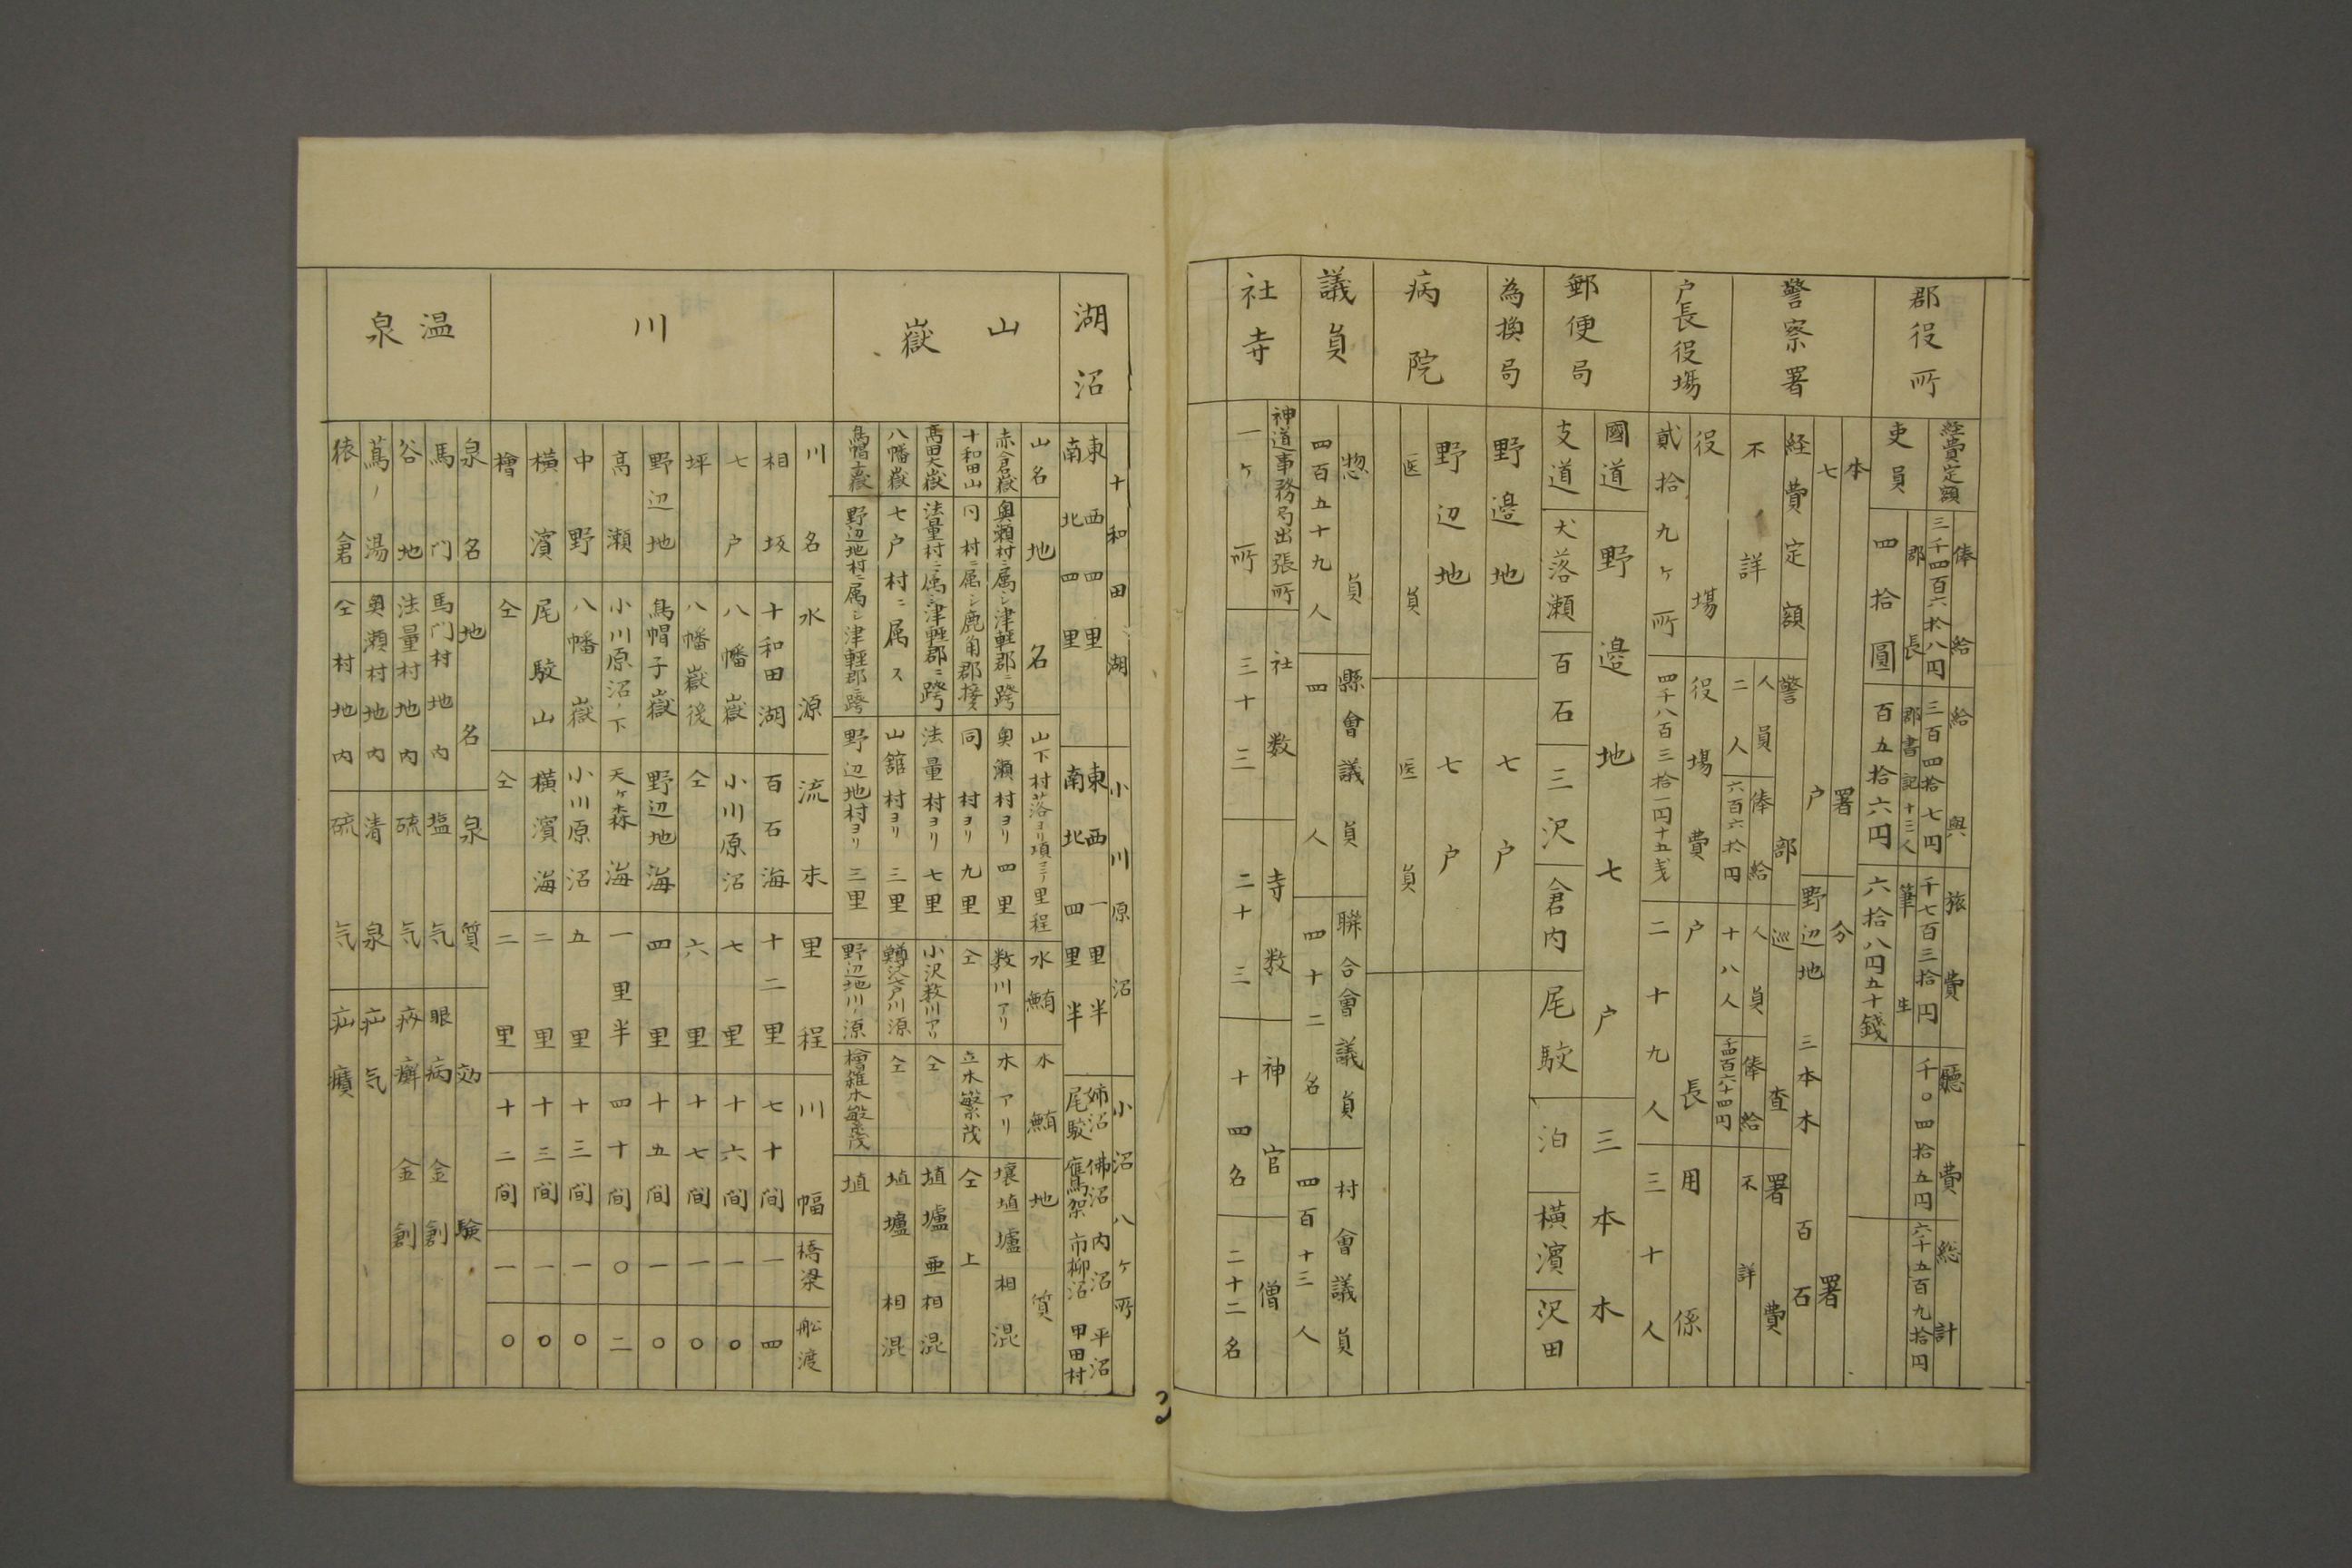 郡役所
経費定額
俸給
三千四百六拾八円
給與
三百四拾七円
旅費
千七百三拾円
廳費
千〇四拾五円
総計
六千五百九拾円
吏員
郡長
四拾圓
郡書記十三人
百五拾六円
筆生
六拾八円五十錢
警察署
本署
七戸
分署
野辺地 三本木 百石
経費定額
不詳
警部
人員
二人
俸給
六百六拾円
巡査
人員
十八人
俸給
千四百六十四円
署費
不詳
戸長役塲
役塲
貳拾九ヶ所
役塲費
四千八百三拾一円十五戔
戸長
二十九人
用係
三十人
郵便局
國道
野邉地 七戸
三本木
支道
犬落瀬
百石
三沢
倉内
尾駮
泊
横濱
沢田
為換局
野邉地
七戸
病院
野辺地
七戸
医員
医員
議員
惣員
四百五十九人
縣會議員
四人
聯合會議員
四十二名
村會議員
四百十三人
社寺
神道事務局出張所
一ヶ所
社数
三十三
寺数
二十三
神官
十四名
僧
二十二名
湖沼
十和田湖
東西四里
南北四里
小川原沼
東西一里半
南北四里半
小沼八ヶ所
姉沼 佛沼 内沼 平沼
尾駮 鷹架 市柳沼 甲田村
山嶽
山名
地名
山下村落ヨリ項ニ至ノ里程
水鮪
木鮪
地質
赤倉嶽
奥瀬村ニ属シ津軽郡ニ跨
奥瀬村ヨリ四里
数川アリ
木アリ
壤埴壚相混
十和田山
同村ニ属シ鹿角郡接ス
同村ヨリ九里
仝
立木繁茂
仝上
髙田大嶽
法量村ニ属シ津軽郡ニ跨
法量村ヨリ七里
小沢数川アリ
仝
埴壚亜相混
八幡嶽
七戸村ニ属ス
山舘村ヨリ三里
仝
埴壚相混
烏帽子嶽
野辺地村ニ属シ津軽郡ニ跨
野辺地村ヨリ三里
野辺地川ノ源
檜雑木繁茂
埴
川
川名
水源
流末
里程
川幅
橋梁
舩渡
相坂
十和田湖
百石海
十二里
七十間
一
四
七戸
八幡嶽
小川原沼
七里
十六間
一
〇
坪
八幡嶽後
仝
六里
十七間
一
〇
野辺地
烏帽子嶽
野辺地海
四里
十五間
一
〇
高瀬
小川原沼ノ下
天ヶ森海
一里半
四十間
〇
二
中野
八幡嶽
小川原沼
五里
十三間
一
〇
横濱
尾駮山
横濱海
二里
十三間
一
〇
檜
仝
仝
二里
十二間
一
〇
温泉
泉名
地名
泉質
効験
馬門
馬門村地内
塩気
眼病 金創
谷地
法量村地内
硫気
病癬 金創
蔦ノ湯
奥瀬村地内
清泉
疝気
猿倉
仝村地内
硫気
疝癪